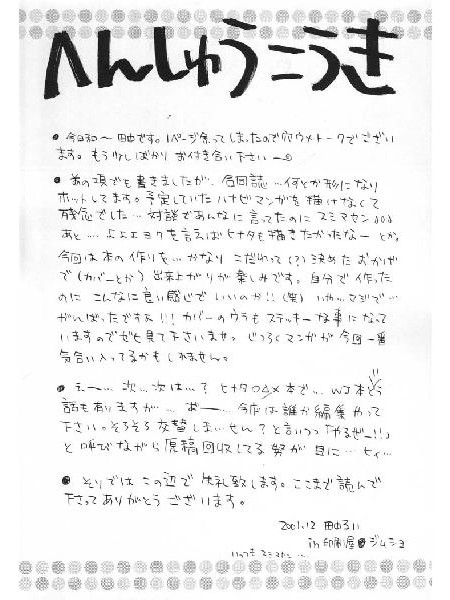 へんしゅうこうき
● 今日和〜 田中です。1ページ余ってしまったので穴ウメトークでござい
ます。もう少しばかり お付き合い下さい
● 前の項でも書きましたが、合同誌…何とか形になり
ホッとしてます。予定していた ハナビマンガを 描けなくて
残念でした…対談であんなに言ってたのに スミマセン
あと… よエヨクを言えば ヒナタも描きたかったなー とか。
今回は本の作りを… かなり こだわって(?)決めた おかげ
で(カバーとか) 出来上がりが 楽しみです。自分で 作った
のに こんなに良い感じで いいのか!!(笑) いや…マジで…
がんばったですよ!!カバーのウラも ステッキーな事になって
いますのでぜひ見て下さいませ。じつろくマンガが 今回一番
気合い入ってるかもしれません。
● え〜… 次…次は…? ヒナタ○△×本で… WJ本とう
話もありますが… あ゛ー… 今度は誰か編集 やって
下さい。そろそろ交替しま…せん?と言いつつ「やるぜー!!」
と叫びながら原稿回収してる 姿が 目に… ヒィ…
● それでは この辺で 失礼致します。ここまで読んで
下さってありがとうございます。
2001.12 田中るい
in 印刷屋●ジムショ
いつも スミマセン…